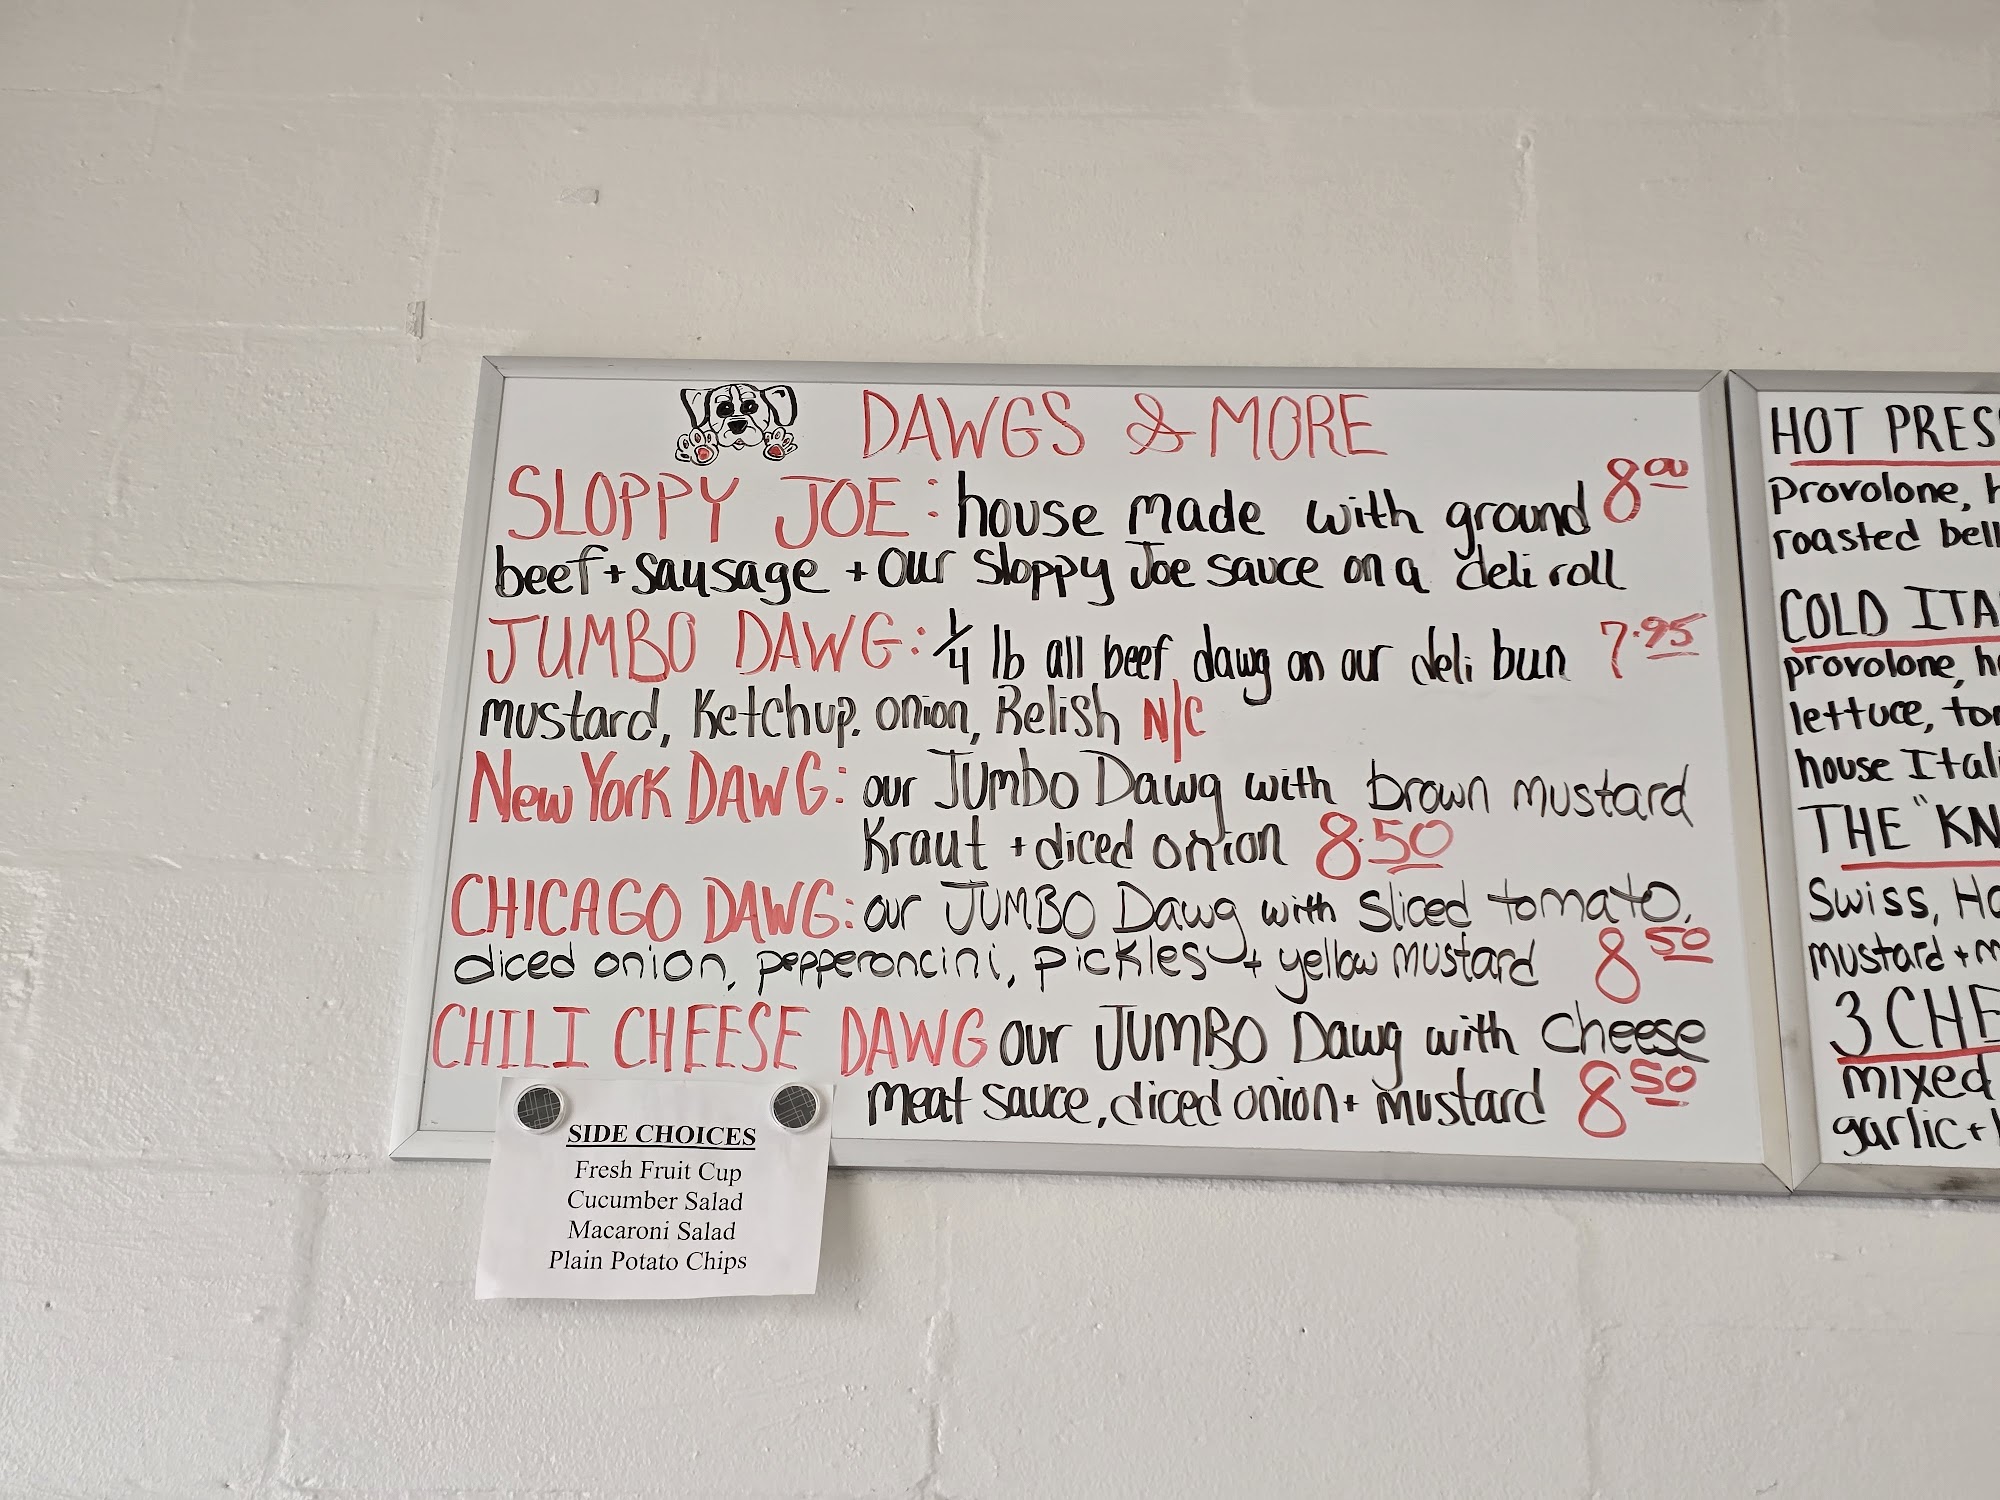 DAWGS & MORE
SLOPPY JOE: house made with ground 8.00
beef + sausage + our sloppy Joe sauce on a deli roll
JUMBO DAWG: 1/4 lb all beef dawg on our deli bun 7.95
mustard, Ketchup, onion, Relish N/C
New York DAWG: our Jumbo Dawg with brown mustard
Kraut + diced onion 8.50
CHICAGO DAWG: our JUMBO Dawg with sliced tomato,
diced onion, pepperoncini, pickles + yellow mustard 8.50
CHILI CHEESE DAWG our JUMBO Dawg with cheese
meat sauce, diced onion + mustard 8.50
SIDE CHOICES
Fresh Fruit Cup
Cucumber Salad
Macaroni Salad
Plain Potato Chips
HOT PRES
provolone,
roasted bell
COLD ITA
provolone,
lettuce,
house Itali
THE "KN
Swiss,
mustard +
3 CHE
mixed
garlic +